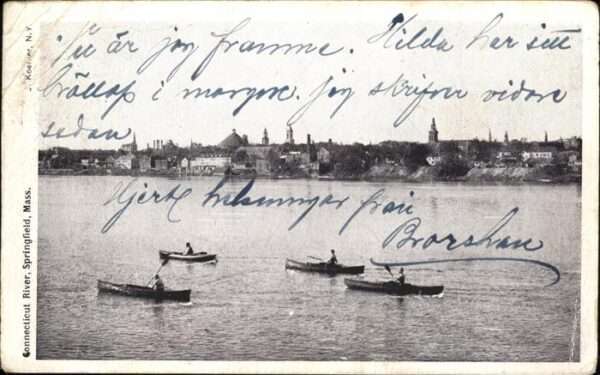 Nu är jag framme. Hilda har sitt
bröllop i morgon. Jag skrifver vidare
sedan
Hjert helsningar från
Koehler, N.Y.
Connecticut River, Springfield, Mass.